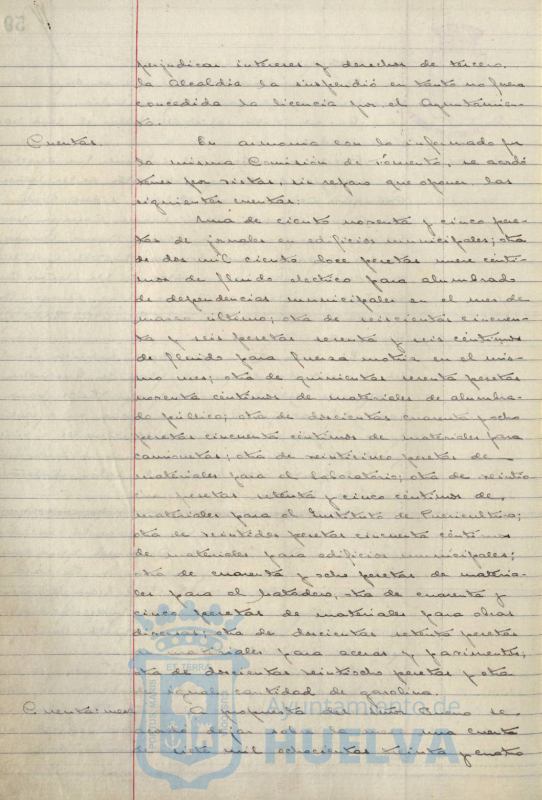 perjudicar intereses y derechos de tercero,
la Alcaldía la suspendió en tanto no fuera
concedida la licencia por el Ayuntamien-
to.
Cuentas. En armonía con lo informado por
la misma Comisión de Fomento, se acordó
tener por vistas, sin reparo que oponer, las
siguientes cuentas:
Una de ciento noventa y cinco pese-
tas de jornales en edificios municipales; otra
de dos mil ciento doce pesetas nueve cénti-
mos de fluido electrico para alumbrado
de dependencias municipales en el mes de
marzo último; otra de seiscientas cincuen-
ta y seis pesetas setenta y seis céntimos
de fluido para fuerza motriz en el mis-
mo mes; otra de quinientas pesetas
noventa céntimos de materiales de alumbra-
do público; otra de doscientas cuarenta y ocho
pesetas cincuenta céntimos de materiales para
camionetas; otra de veinticinco pesetas de
materiales para el laboratorio; otra de
pesetas setenta y cinco céntimos de
materiales para el Instituto de Puericultura;
otra de veintidos pesetas cincuenta céntimos
de materiales para edificios municipales;
otra de cuarenta y ocho pesetas de materia-
les para el Matadero, otra de cuarenta y
cinco pesetas de materiales para obras
diversas; otra de doscientas pesetas
materiales para aceras y pavimentos;
otra de doscientas veintiocho pesetas y otra
de igual cantidad de gasolina.
A propuesta del Señor se
dejar sobre una cuenta
mil ochocientas treinta y cuatro
Ayuntamiento de
HUELVA